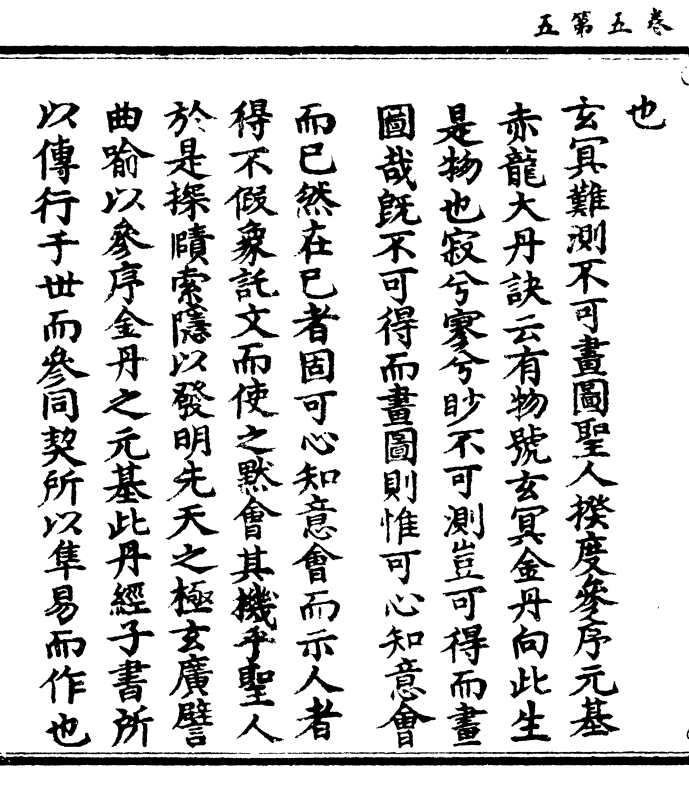 卷五第五
也
玄冥難測不可畫圖聖人揆度參序元基
赤龍大丹訣云有物號玄冥金丹向此生
是物也寂兮寥兮眇不可測豈可得而畫
圖哉既不可得而畫圖則惟可心知意會
而已然在已者固可心知意會而示人者
得不假象託文而使之黙會其機乎聖人
於是探賾索隱以發明先天之極玄廣譬
曲喻以參序金丹之元基此丹經子書所
以傳行于世而參同契所以準易而作也